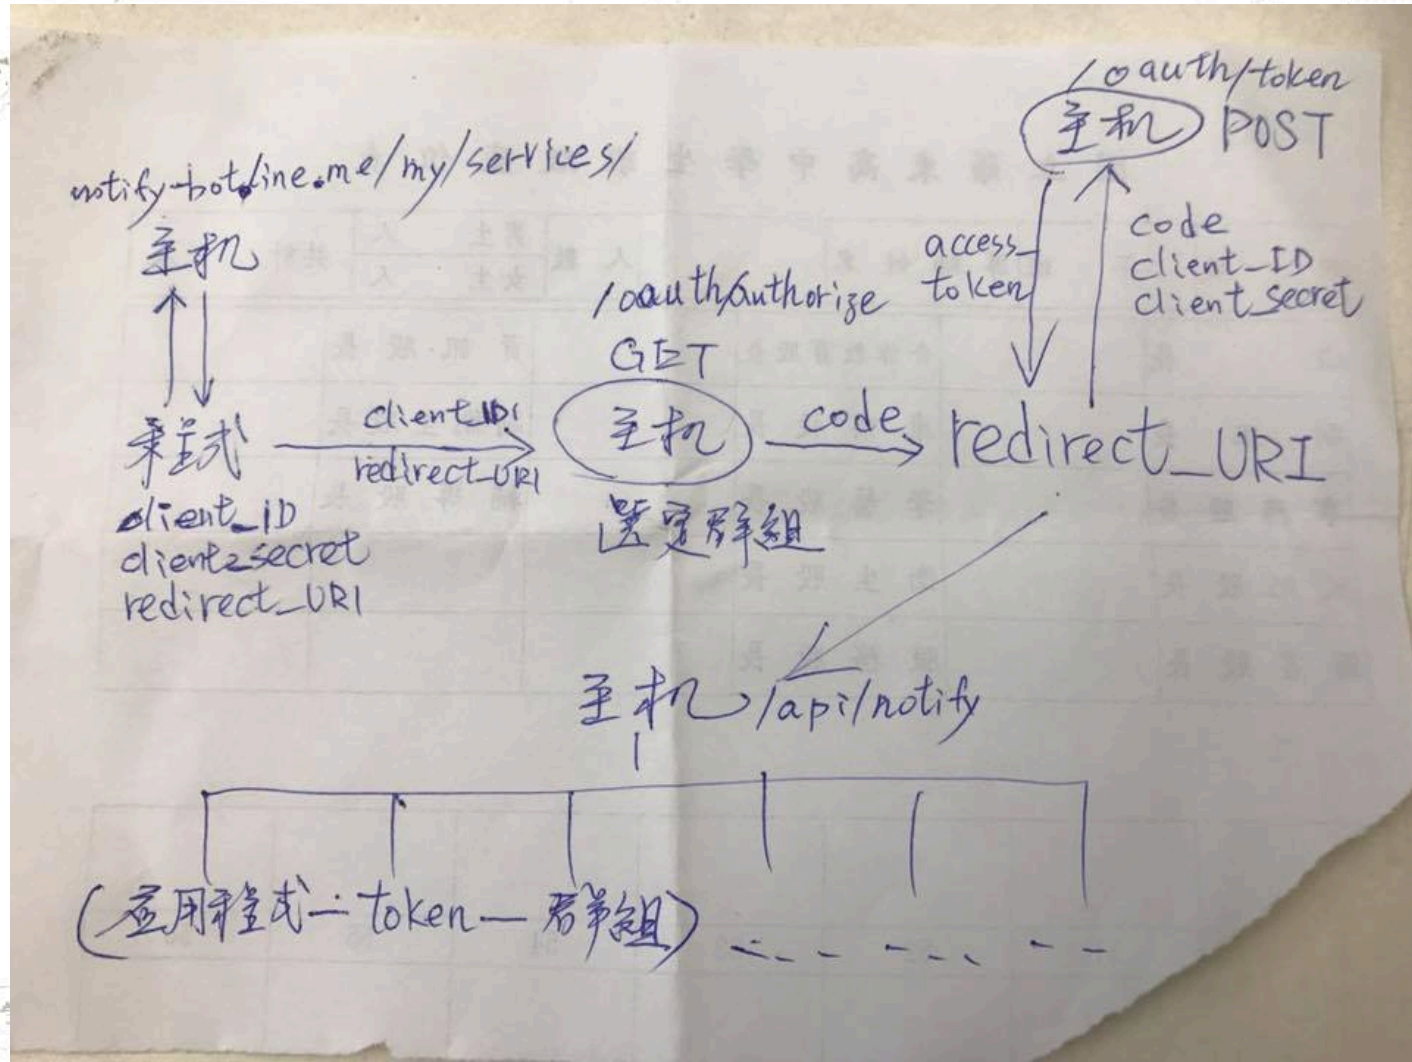 /oauth/token
主机 POST
notify-bot.line.me/my/services/
主机
access_
token
code
client_ID
client_secret
/oauth/authorize
GET
程式
client_ID
redirect_URI
主机
code
redirect_URI
client_ID
client_secret
redirect_URI
選定群組
主机 /api/notify
(应用程式—token—群組)